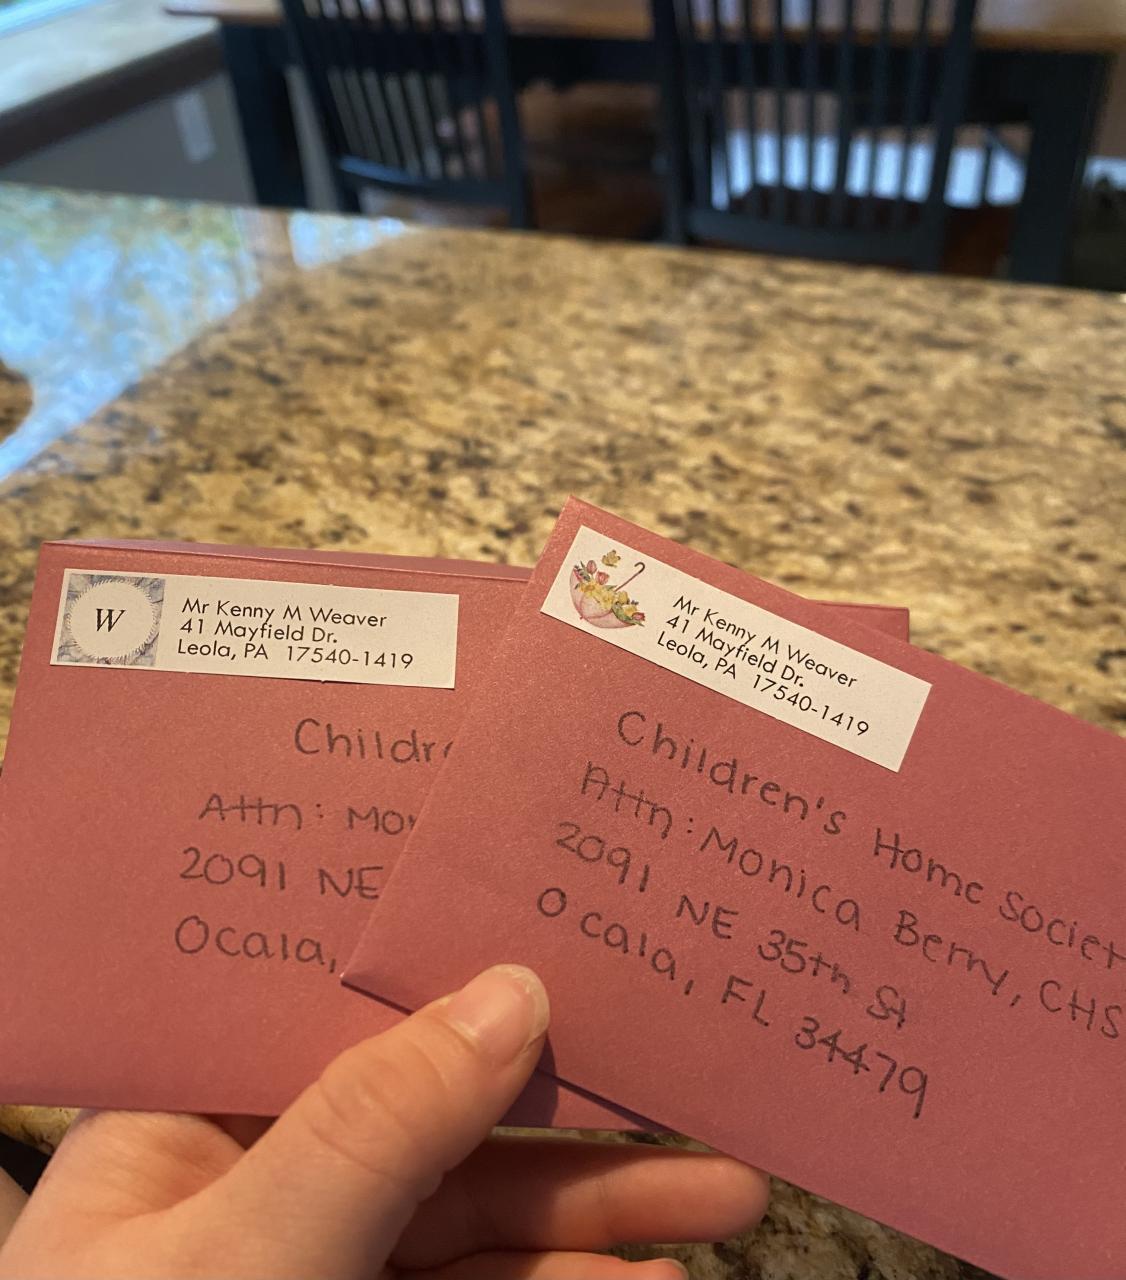 W
Mr Kenny M Weaver
41 Mayfield Dr.
Leola, PA 17540-1419
Childr
Attn: Mo
2091 NE
Ocala,
Mr Kenny M Weaver
41 Mayfield Dr.
Leola, PA 17540-1419
Children's Home Societ
Attn: Monica Berry, CHS
2091 NE 35th St
Ocala, FL 34479